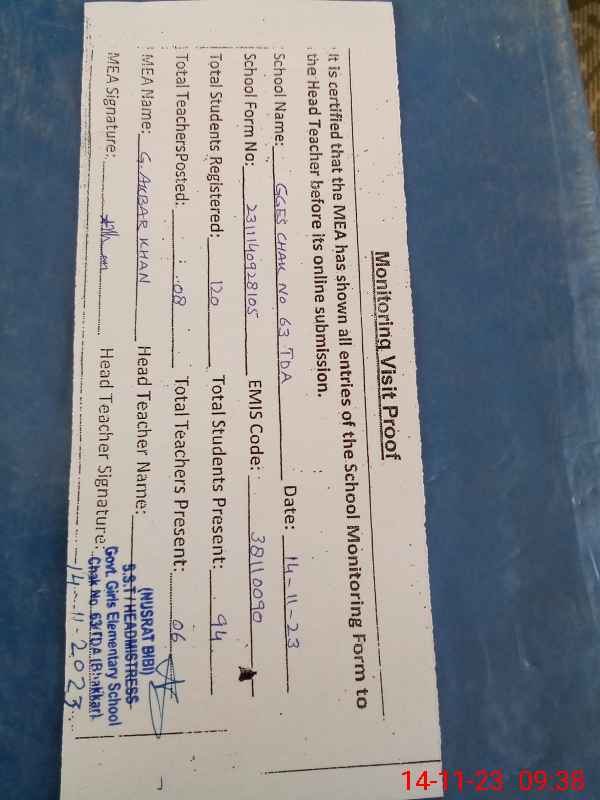 Monitoring Visit Proof
It is certified that the MEA has shown all entries of the School Monitoring Form to
the Head Teacher before its online submission.
School Name: GGES CHAK No 63 TDA Date: 14-11-23
School Form No: 2311140928105 EMIS Code: 38110090
Total Students Registered: 120 Total Students Present: 94
Total TeachersPosted: 08 Total Teachers Present: 06
MEA Name: G. AKBAR KHAN Head Teacher Name:
MEA Signature: Head Teacher Signature
(NUSRAT BIBI)
S.S.T / HEADMISTRESS
Govt. Girls Elementary School
Chak No. 63/TDA (Bhakkar)
14-11-2023
14-11-23 09:38